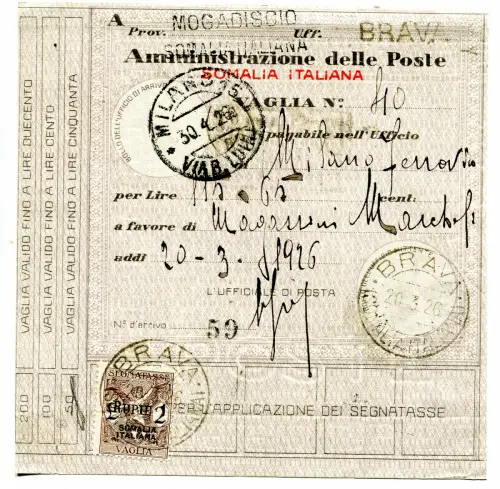 A
MOGADISCIO
Prov. Uff. BRAVA
SOMALIA ITALIANA
Amministrazione delle Poste
SOMALIA ITALIANA
VAGLIA N.° 40
BOLLO DELL'UFFICIO DI ARRIVO
MILANO
30.4.26
VIA B.
pagabile nell'Ufficio
Milano
per Lire cent:
a favore di Magazzini
addì 20-3-1926
L'UFFICIALE DI POSTA
N.° d'arrivo 59
BRAVA
20.3.26
VAGLIA VALIDO FINO A LIRE DUECENTO
VAGLIA VALIDO FINO A LIRE CENTO
VAGLIA VALIDO FINO A LIRE CINQUANTA
200
100
50
PER L'APPLICAZIONE DEI SEGNATASSE
BRAVA
SEGNATASSE
2 RUPIE 2
SOMALIA
ITALIANA
VAGLIA